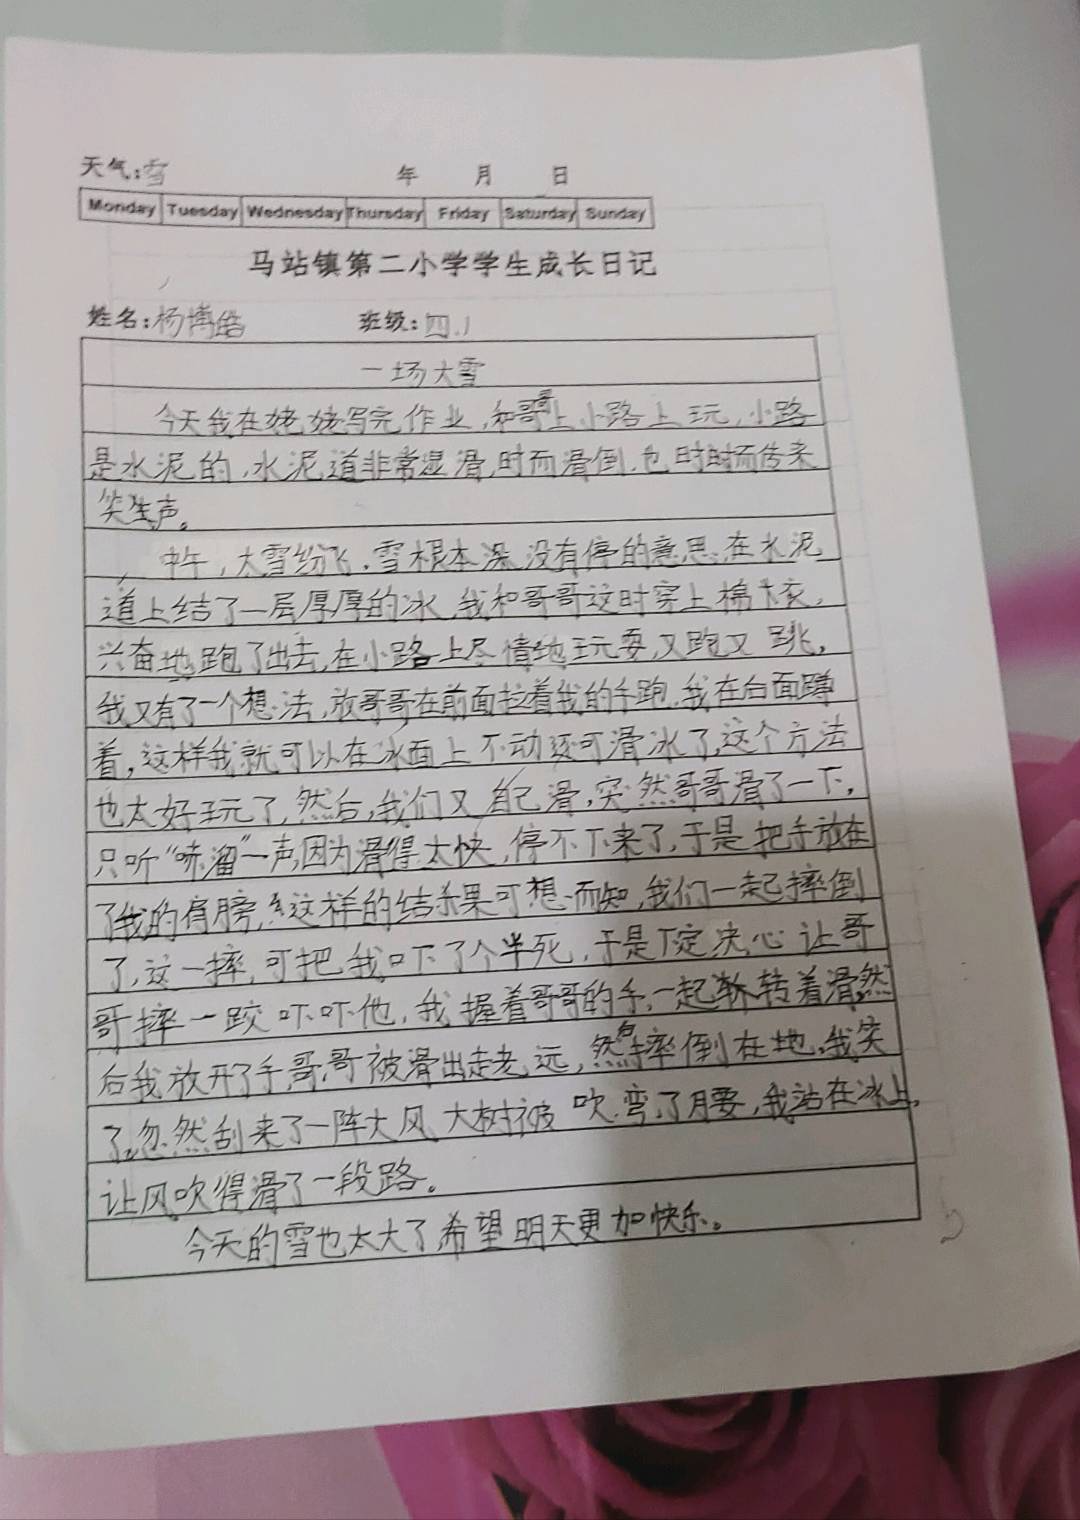 天气:雪 年 月 日
Monday Tuesday Wednesday Thursday Friday Saturday Sunday
马站镇第二小学学生成长日记
姓名:杨博皓 班级:四.1
一场大雪
今天我在姥姥写完作业,和哥哥上小路上玩,小路
是水泥的,水泥道非常湿滑,时而滑倒,也时时而传来
笑声。
中午,大雪纷飞.雪根本没没有停的意思,在水泥
道上结了一层厚厚的冰,我和哥哥这时穿上棉大衣,
兴奋地跑了出去,在小路上尽情地玩耍,又跑又跳,
我又有了一个想法,放哥哥在前面拉着我的手跑,我在后面蹲
着,这样我就可以在冰面上不动还可滑冰了,这个方法
也太好玩了,然后,我们又自己滑,突然哥哥滑了一下,
只听“哧溜”一声,因为滑得太快,停不下来了,于是把手放在
了我的肩膀,这样的结果可想而知,我们一起摔倒
了,这一摔,可把我吓了个半死,于是下定决心让哥
哥摔一跤吓吓他,我握着哥哥的手,一起转着滑,然
后我放开了手,哥哥被滑出走老远,然后摔倒在地,我笑
了,忽然刮来了一阵大风,大树被吹弯了腰,我站在冰上,
让风吹得滑了一段路。
今天的雪也太大了,希望明天更加快乐。